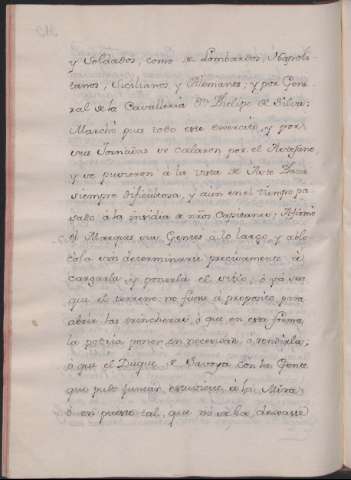 y Soldados, como de Lombardos, Napoli-
tanos, Sicilianos y Alemanes; y por Gene-
ral de la Cavalleria Dn Phelipe de Silva:
Marchó pues todo este exercito, y por
sus Jornadas se calaron por el Artesano
y se pusieron à la vista de Aste Plaza
siempre dificultosa, y aun en el tiempo pa-
sado à la imbidia de nros Capitanes;
el Marques sus Gentes à lo largo, y abloc-
cola sin determinarse precisamente à
cargarla, y ponerla el sitio, ó ya sea
que el terreno no fuese à proposito para
abrir las trincheras, ó que en esta forma
la podria poner en necesidad, a rendirla;
ó que el Duque de Savoya con la Gente
que pudo juntar, estuviese à la Mira
ó en puesto tal, que no se ha, dexasse